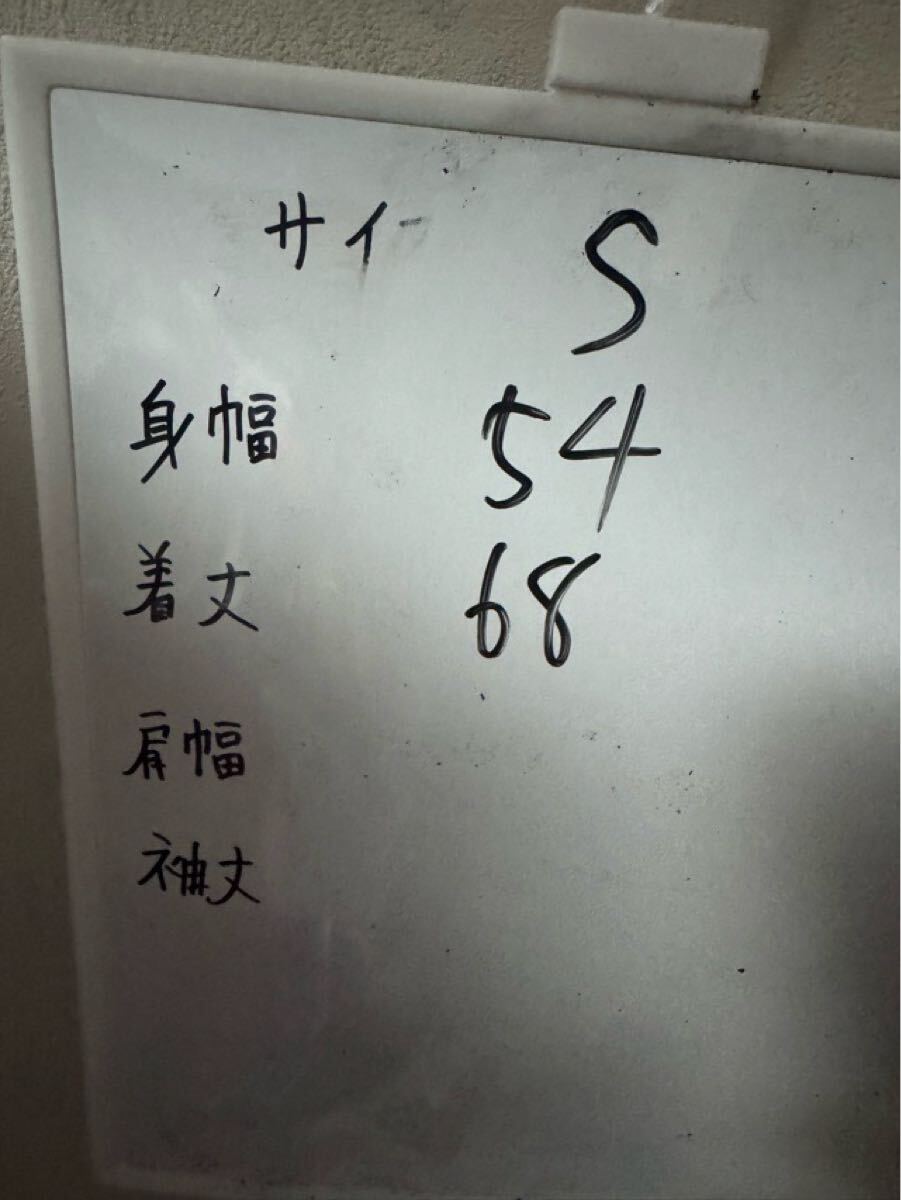 サイ S
身幅 54
着丈 68
肩幅
袖丈